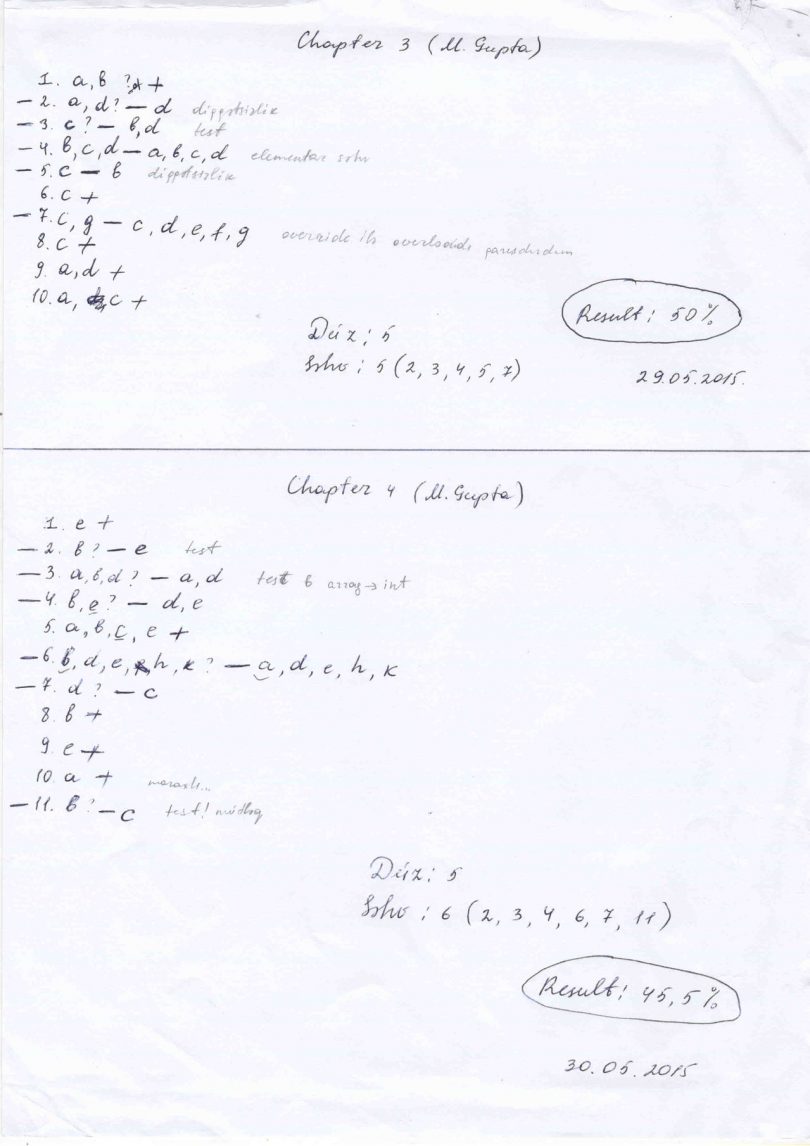 Chapter 3 (M. Gupta)
1. a, b ? +
– 2. a, d? – d diqqətsizlik
– 3. c? – b, d test
– 4. b, c, d – a, b, c, d elementar səhv
– 5. c – b diqqətsizlik
6. c +
– 7. c, g – c, d, e, f, g override ilə overloadı
8. c +
9. a, d +
10. a, c +
Result: 50%
Düz: 5
Səhv: 5 (2, 3, 4, 5, 7)
29.05.2015.
Chapter 4 (M. Gupta)
1. e +
– 2. b? – e test
– 3. a, b, d? – a, d test b array → int
– 4. b, e? – d, e
5. a, b, c, e +
– 6. b, d, e, h, k? – a, d, e, h, k
– 7. d? – c
8. b +
9. e +
10. a + maraqlı...
– 11. b? – c test!
Düz: 5
Səhv: 6 (2, 3, 4, 6, 7, 11)
Result: 45,5%
30.05.2015